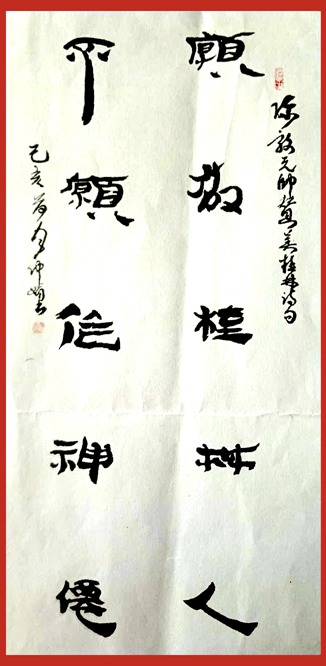 陈毅元帥赞美桂林诗句
願做桂林人
不願作神僊
己亥